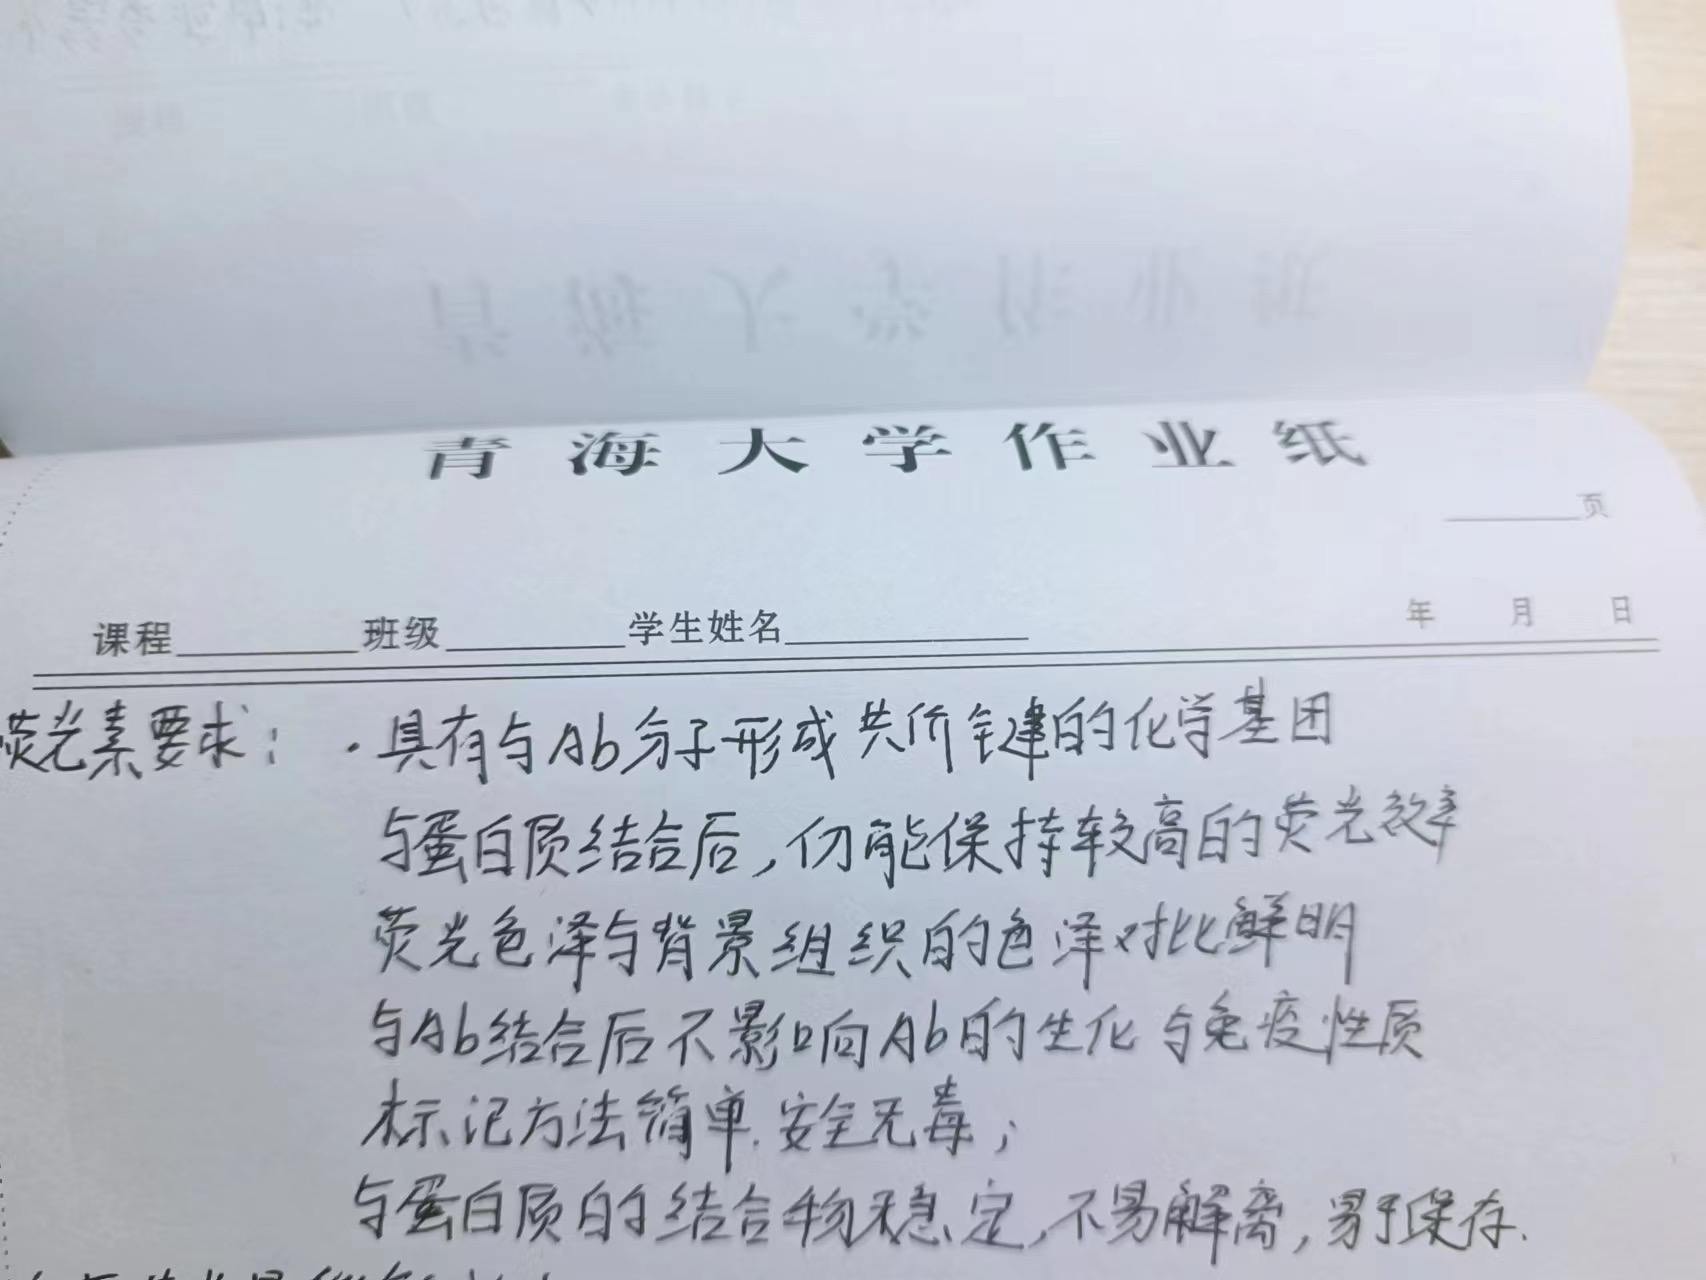 青海大学作业纸
页
课程 班级 学生姓名 年 月 日
荧光素要求： ·具有与Ab分子形成共价键的化学基团
与蛋白质结合后，仍能保持较高的荧光效率
荧光色泽与背景组织的色泽对比鲜明
与Ab结合后不影响Ab的生化与免疫性质
标记方法简单.安全无毒；
与蛋白质的结合物稳定,不易解离，易于保存.